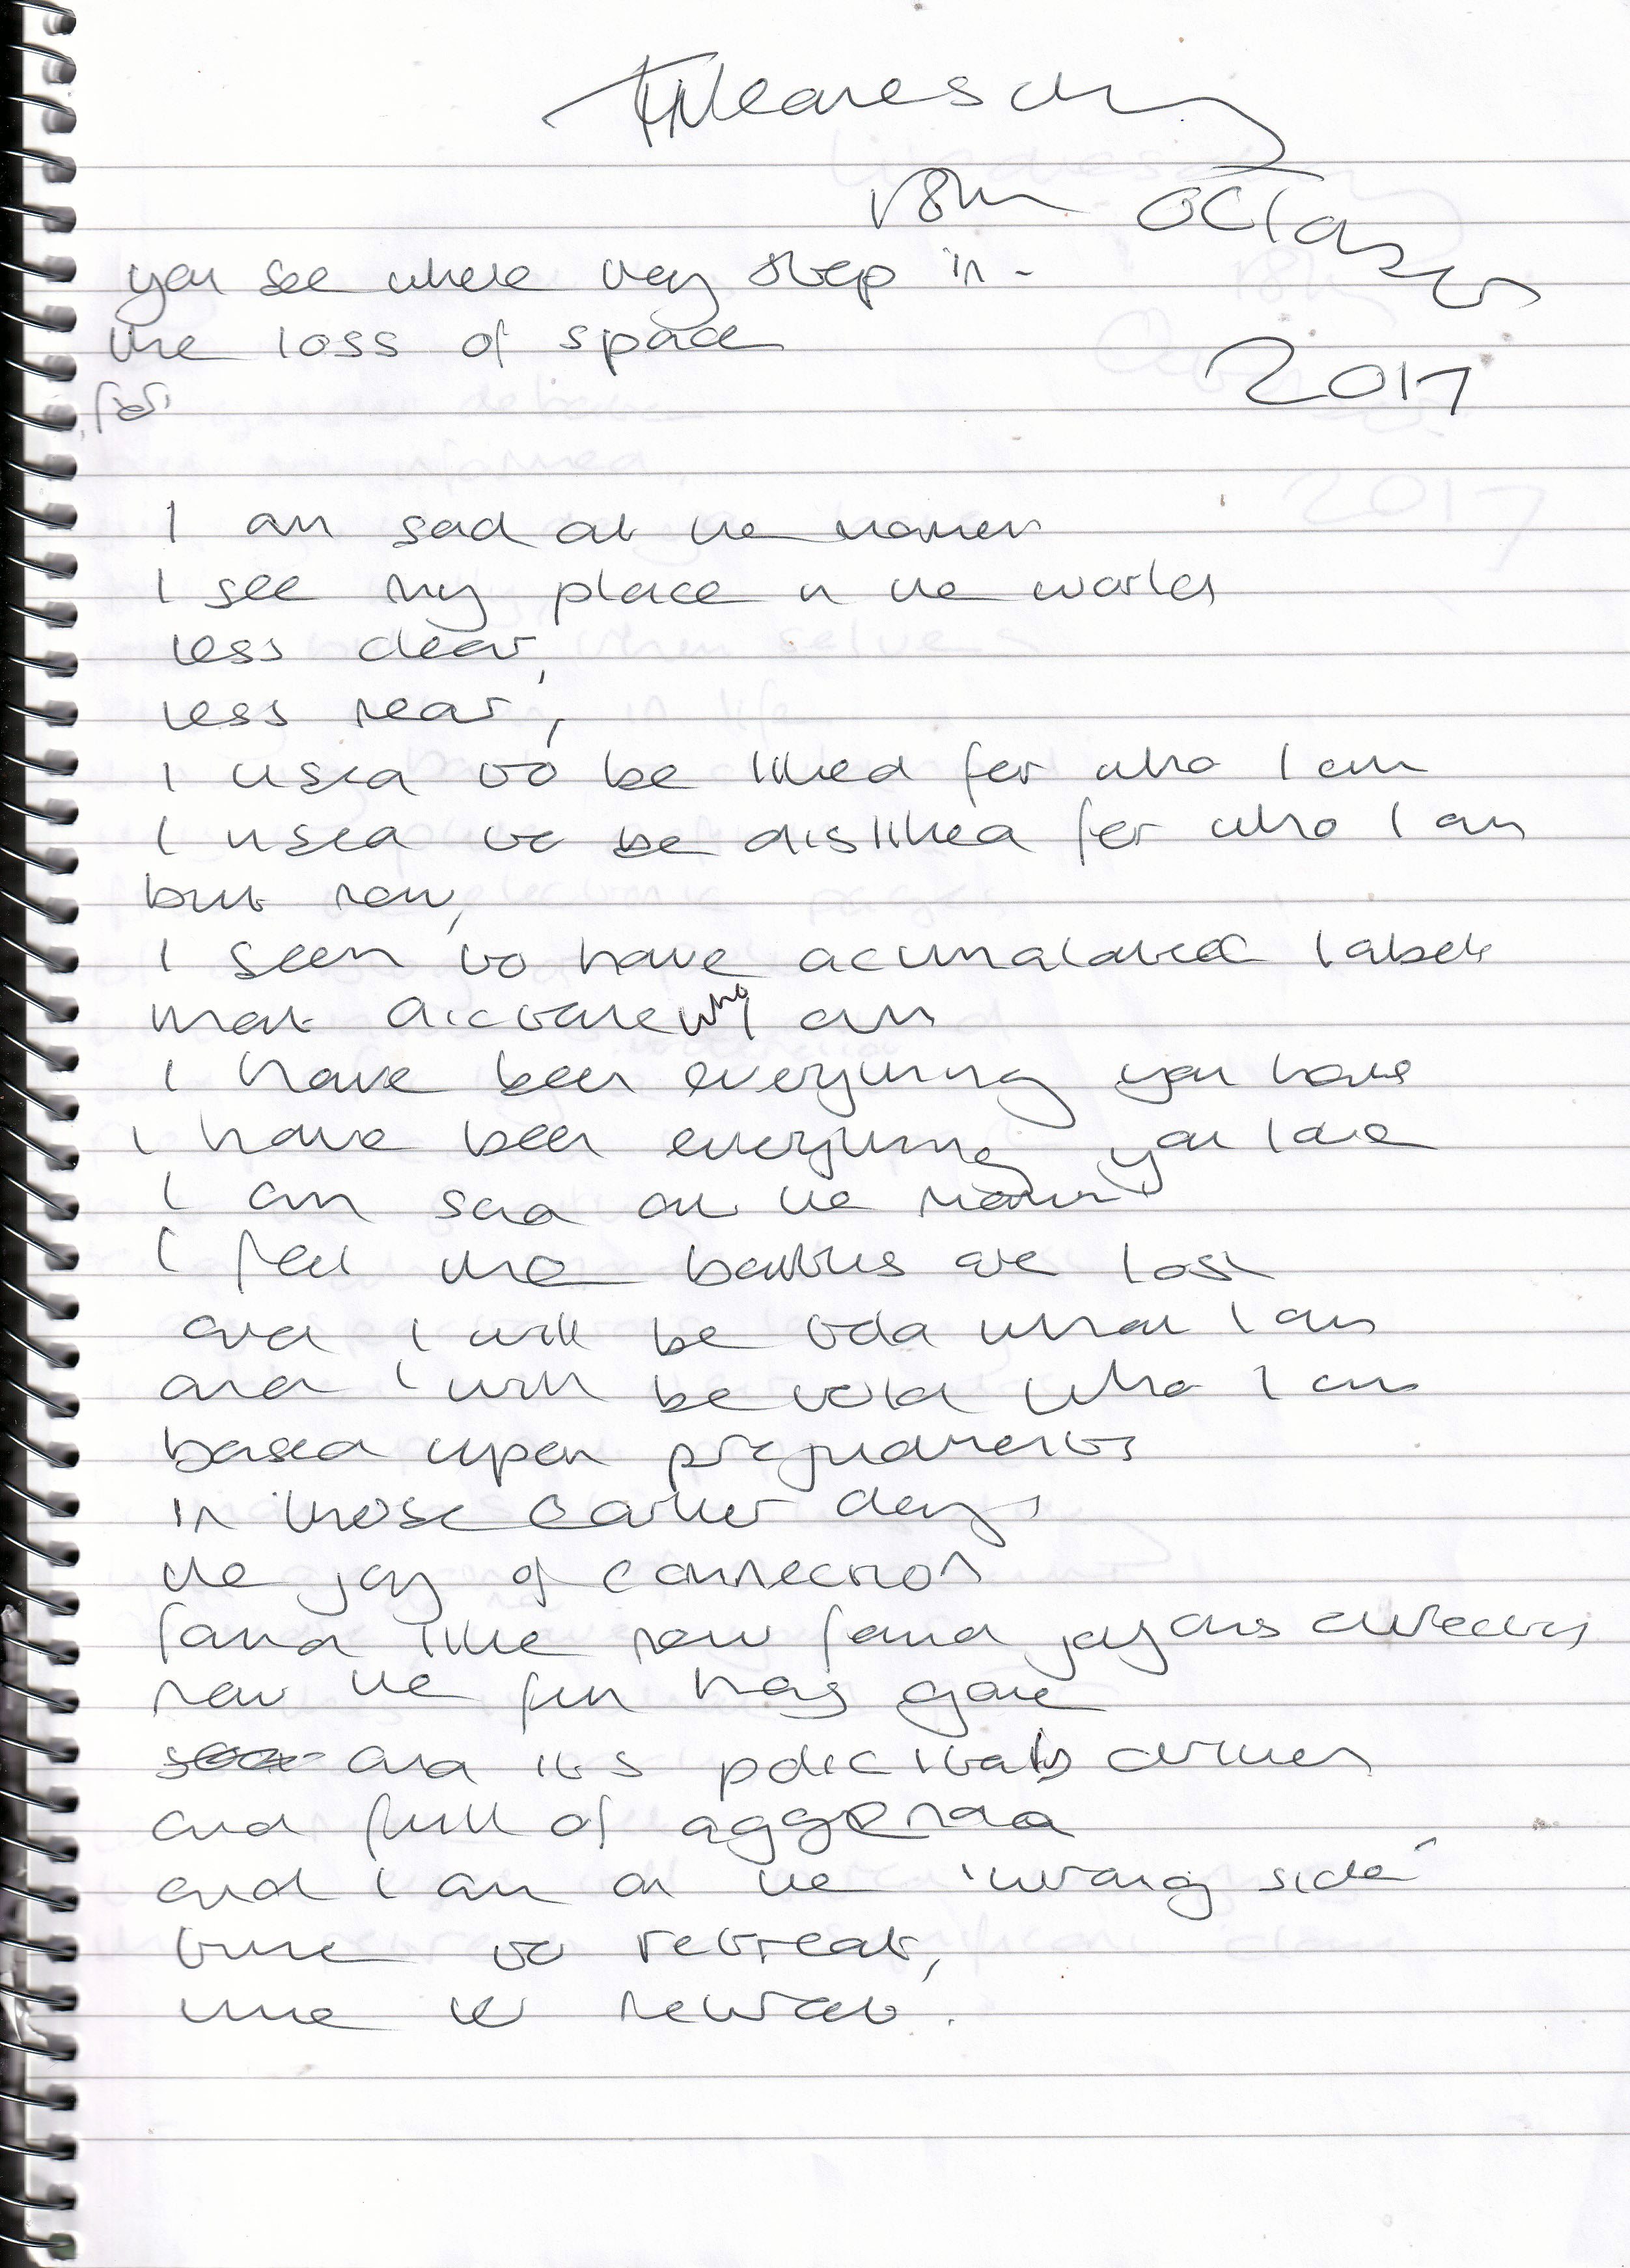 Wednesday
18th October
2017
you see where they step in -
the loss of space
for
I am sad at the moment
I see my place in the world
less clear,
less near,
I used to be liked for who I am
I used to be disliked for who I am
but now,
I seem to have acumalated labels
that dictate who I am
I have been everything you have
I have been everything you love
I am sad at the moment
I feel the battles are lost
and I will be told what I am
and I will be told who I am
based upon
in those earlier days
the joy of connection
found like now found joyous
now the fun has gone
and its driven
and full of aggenda
and I am on the 'wrong side'
time to retreat,
time to